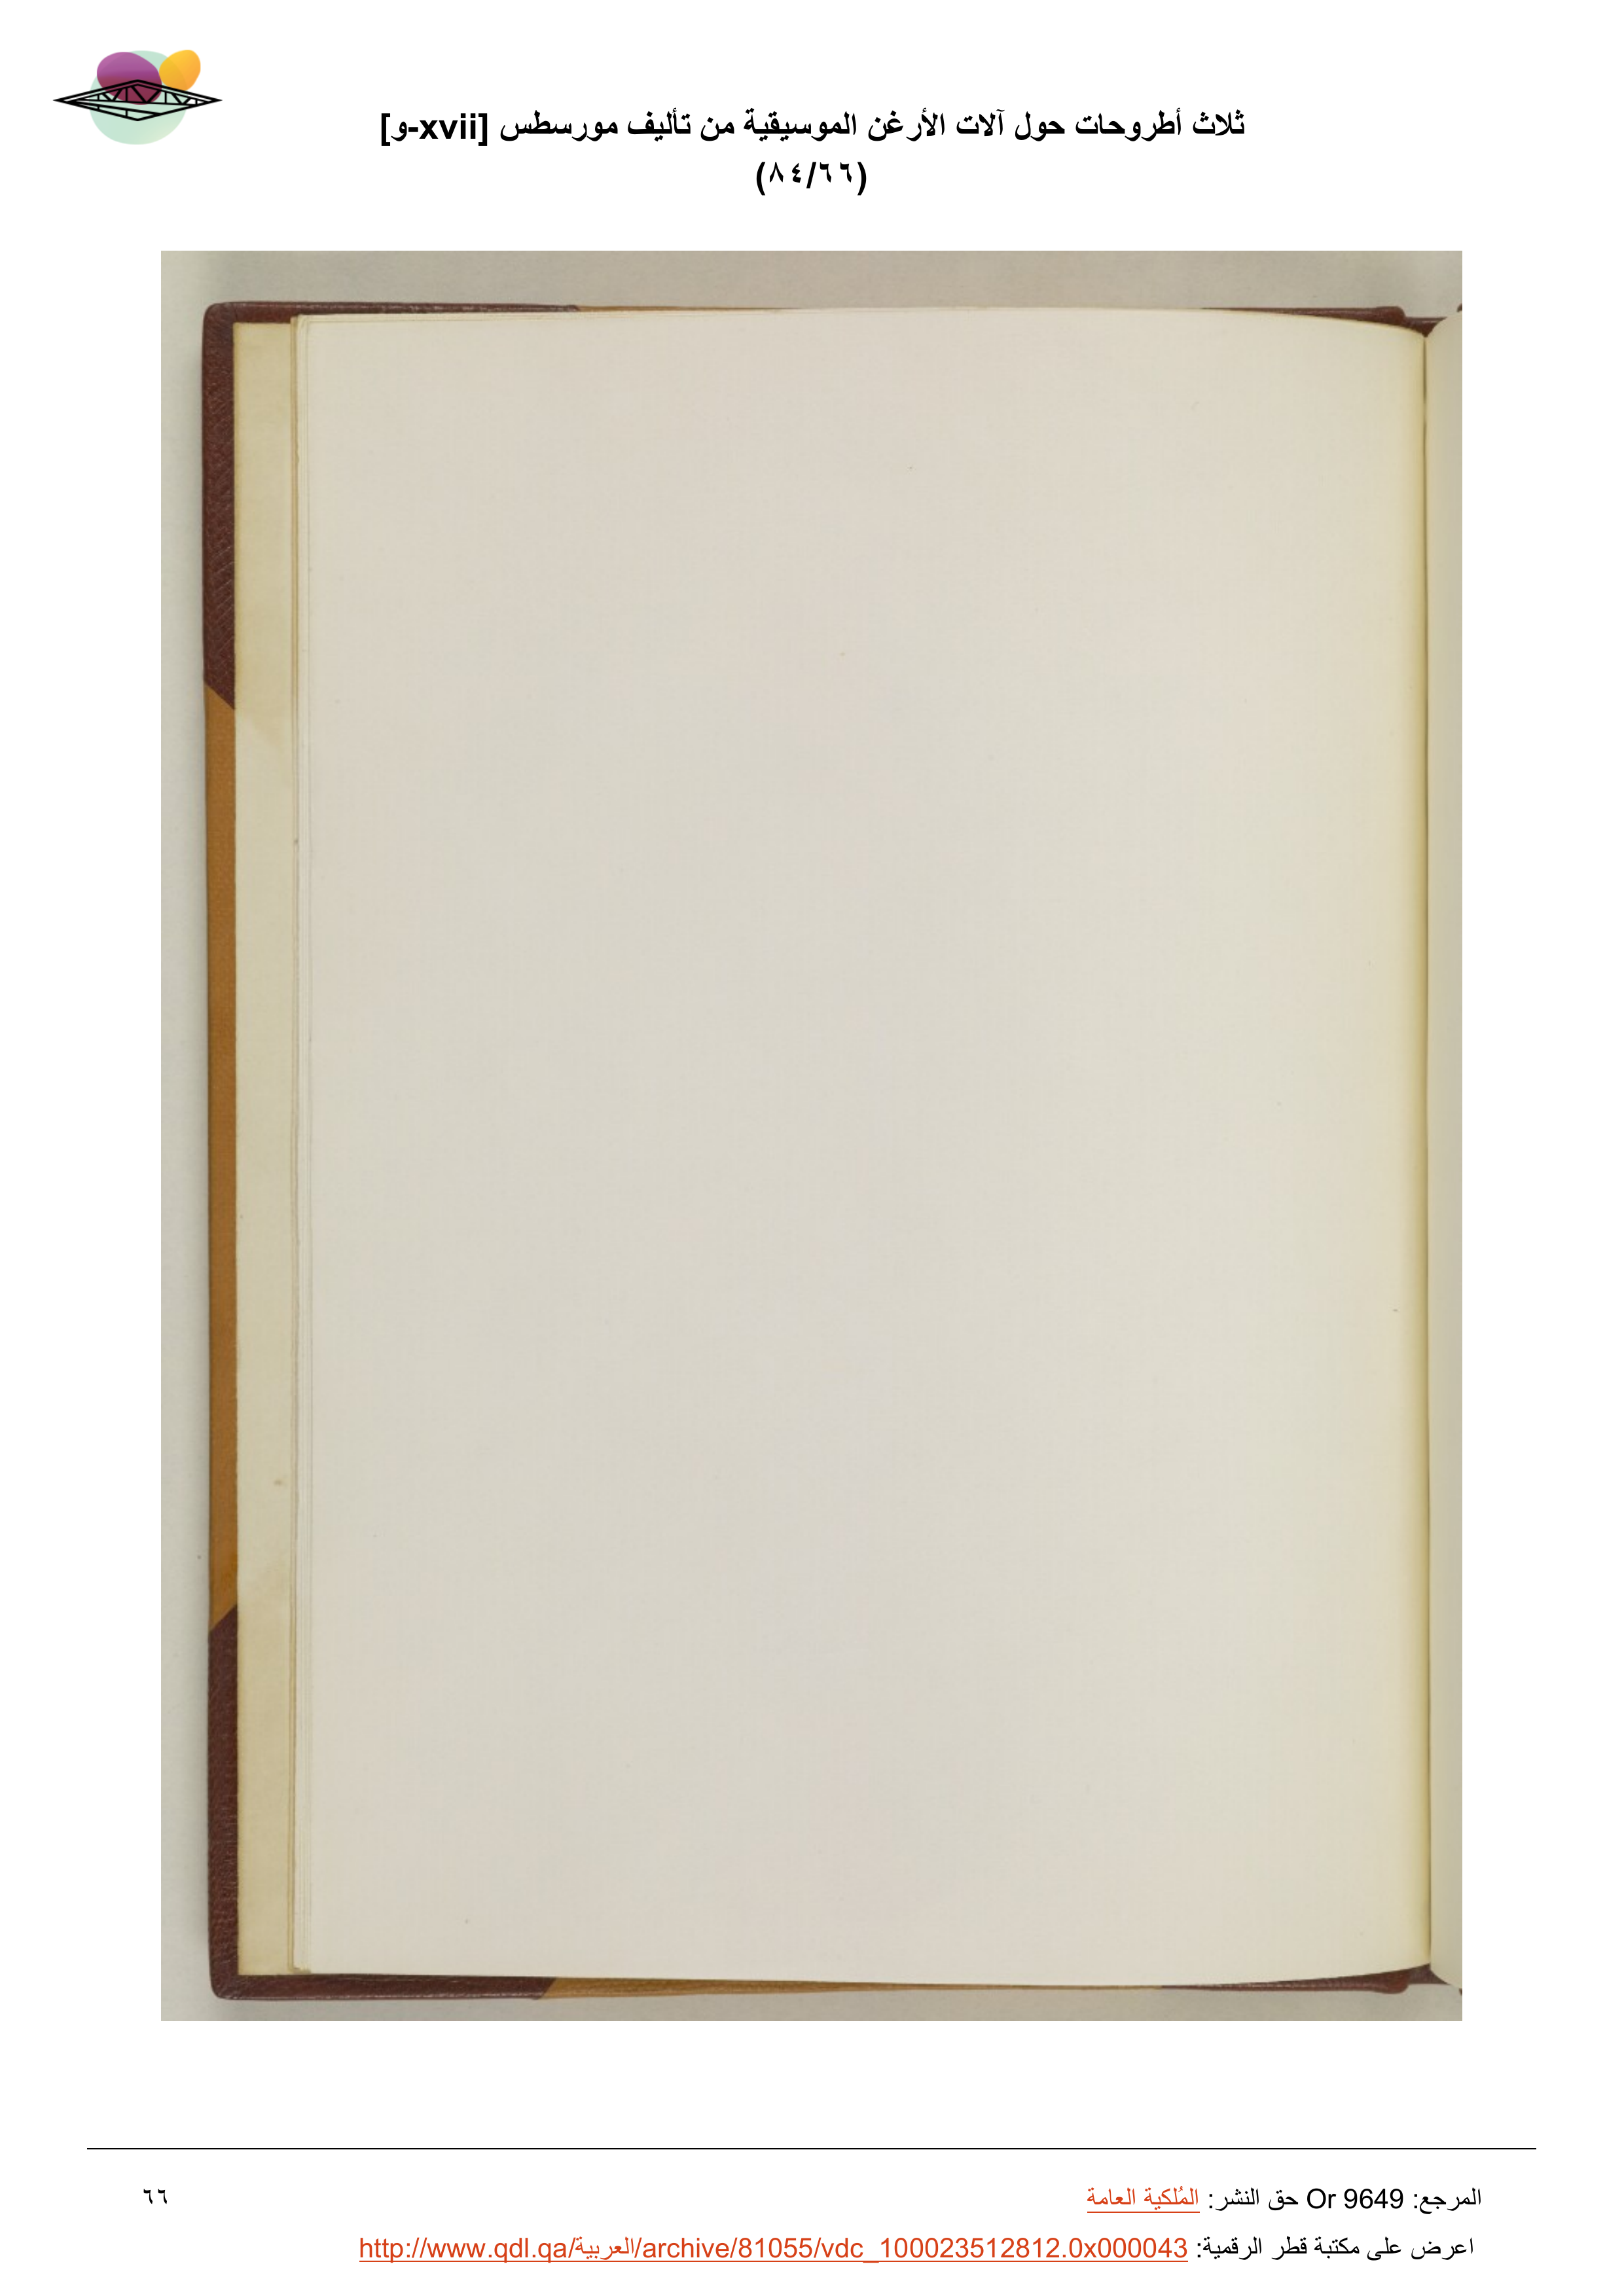 ثلاث أطروحات حول آلات الأرغن الموسيقية من تأليف مورسطس [xvii-و]
(٨٤/٦٦)
المرجع: Or 9649 حق النشر: المُلكية العامة
٦٦
اعرض على مكتبة قطر الرقمية: http://www.qdl.qa/العربية/archive/81055/vdc_100023512812.0x000043